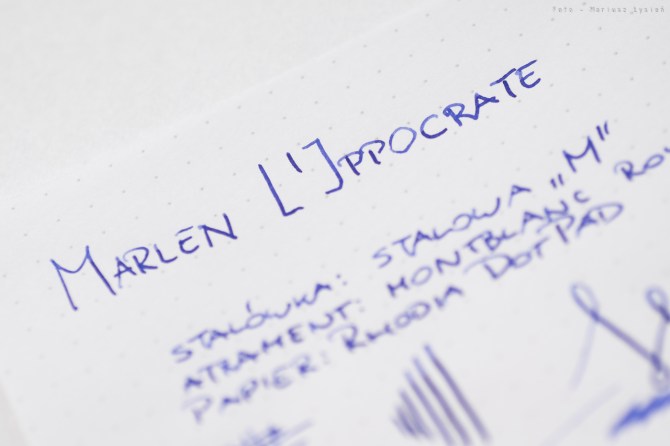 Foto - Mariusz Łysień
MARLEN L'IPPOCRATE
STALÓWKA: STALOWA „M"
ATRAMENT: MONTBLANC ROY
PAPIER: RHODIA DOTPAD